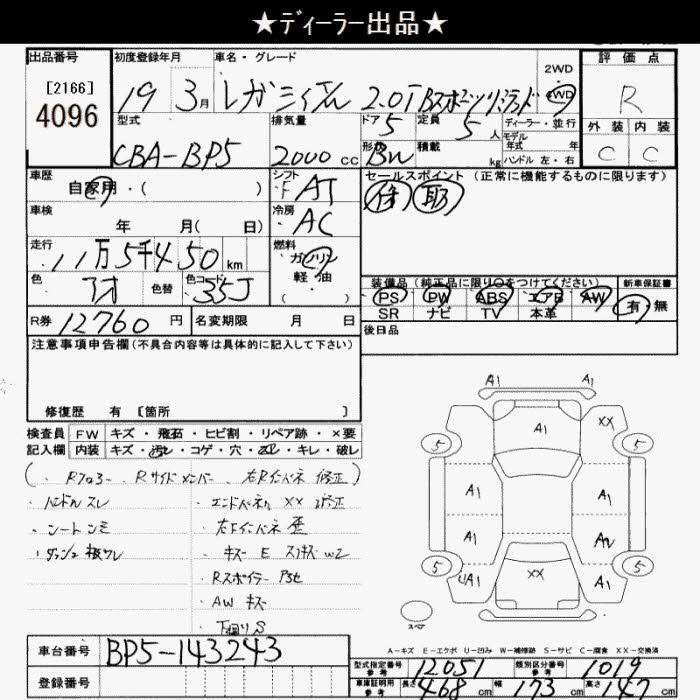 ★ディーラー出品★
出品番号
[2166]
4096
初度登録年月
19 3月
車名・グレード
レガシィ 2.0i Bスポーツ
2WD
4WD
評価点
R
外装 内装
C C
型式
CBA-BP5
排気量
2000 cc
ドア 5
定員 5 人
ディーラー・並行
モデル
年式 年
形状 BW
積載 kg
ハンドル 左・右
車歴
自家用・( )
シフト
F AT
セールスポイント(正常に機能するものに限ります)
保 取
車検
年 月( 日)
冷房
AC
走行
11万5千450 km
燃料
ガソリン
軽・油
( )
色
アオ
色替
色コード
35J
装備品(純正品に限り○をつけてください)
PS PW ABS エアB AW
SR ナビ TV 本革
新車保証書
有・無
R券 12760 円
名変期限 月 日
後日品
注意事項申告欄(不具合内容等は具体的に記入して下さい)
修復歴 有 [箇所 ]
検査員 FW キズ・飛石・ヒビ割・リペア跡・×要
記入欄 内装 キズ・汚れ・コゲ・穴・ズレ・キレ・破レ
(・Rフロアー ・Rサイドメンバー ・右Rインパネ 修正)
・ハンドル スレ
・エンドパネル XX 修正
・シート シミ
・右下インパネ 歪
・ダッシュ 板ワレ
・キズ E スリキズ W2
・Rスポイラー
・AW キズ
・下廻り S
A1 A1
A1 XX
5 5
A1 A1
A1 A2
5 5
UA1 XX A1
スペア
A-キズ E-エクボ U-凹み W-補修跡 S-サビ C-腐食 XX-交換済
車台番号 BP5-143243
登録番号
型式指定番号
参考
12051
類別区分番号
参考
1019
車庫証明用
参考
長さ 468 cm 幅 173 cm 高さ 147 cm